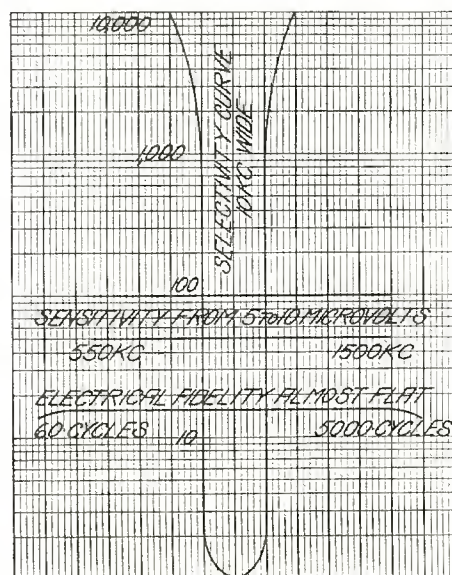 10,000
SELECTIVITY CURVE
10KC WIDE
1,000
100
SENSITIVITY FROM 5 TO 10 MICROVOLTS
550KC 1500KC
ELECTRICAL FIDELITY ALMOST FLAT
60 CYCLES 10 5000 CYCLES